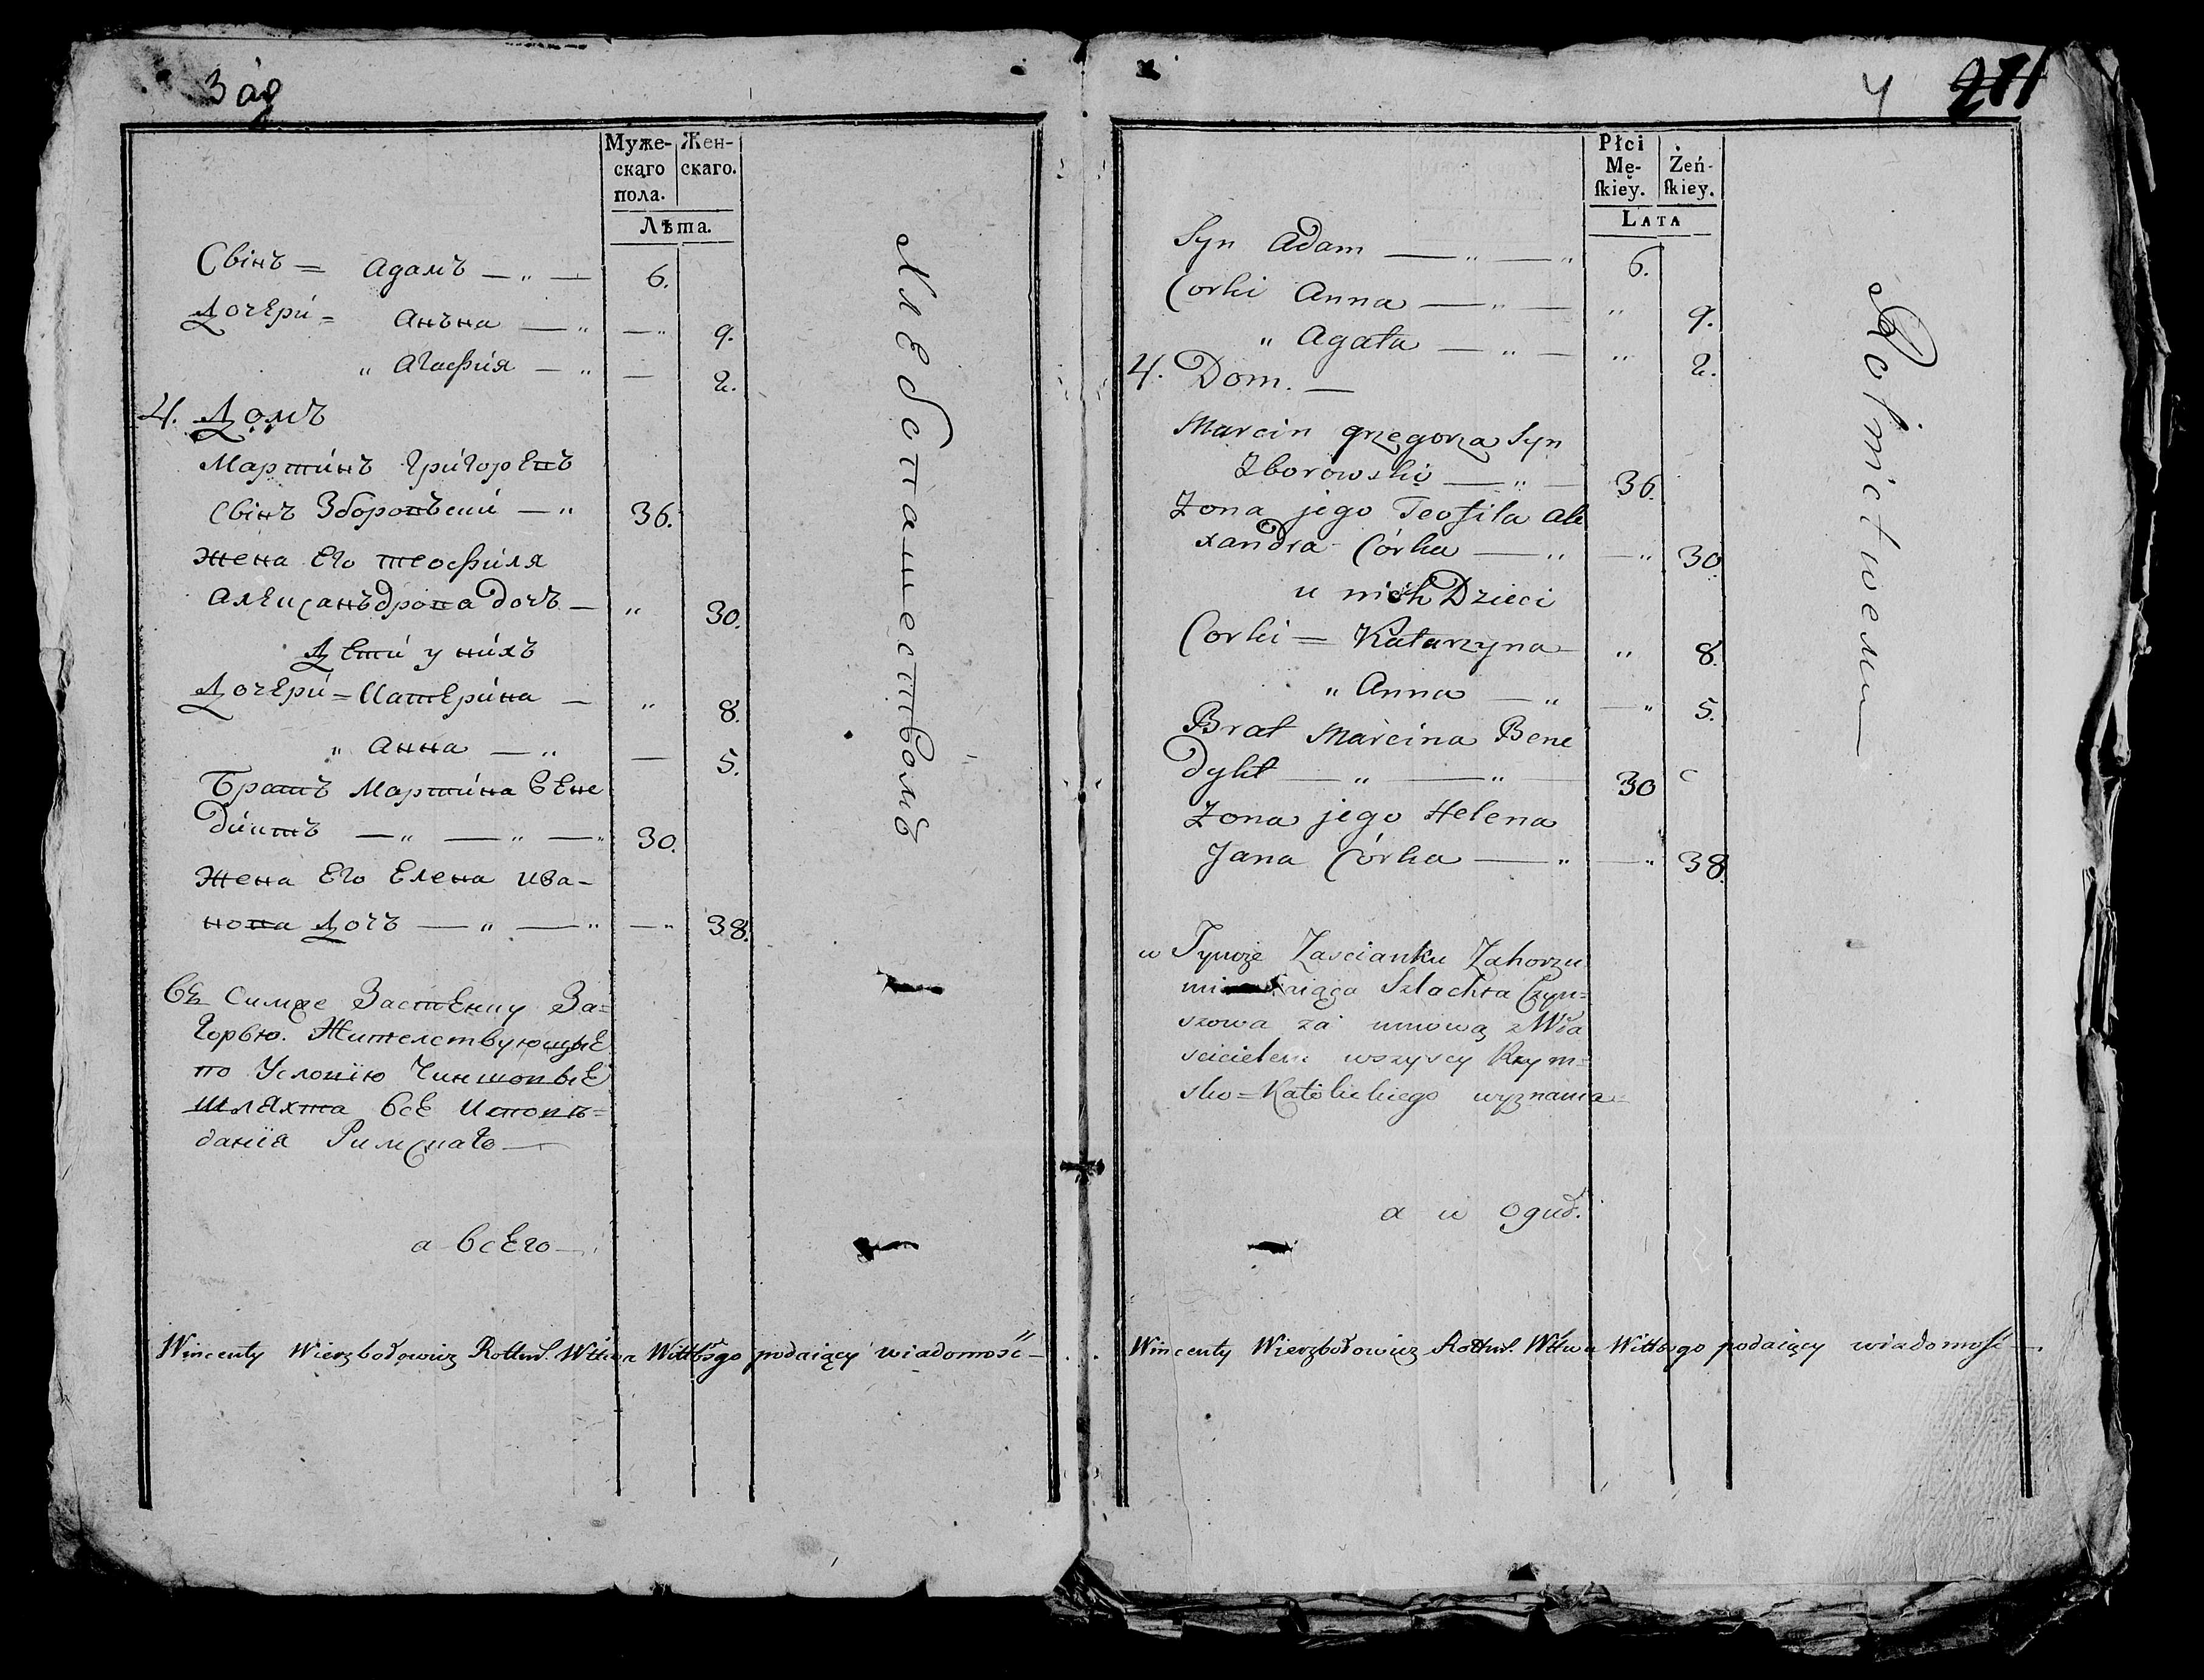 3 ад
Муже-
скаго
пола.
Жен-
скаго.
Лѣта.
Свінъ = Адамъ — „ — 6.
Дочери = Анъна — „ — „ 9.
„ Агафия — „ — 2.
4. Домъ
Мартинъ Григоревъ
Свінъ Зборовъски — „ 36.
Жена Его теофиля
Алексанъдрова дочъ — „ 30.
Дети у нихъ
Дочери = Катерина — „ 8.
„ Анна — „ — 5.
Братъ Мартина Вене
диктъ — „ — „ — „ 30.
Жена Его Елена Ива-
нова Дочъ — „ — „ — „ 38.
въ Симже Застенку За=
горью. Жителствующые
по Условїю Чиншовые
шляхта все Исповѣ=
данїя Римскаго —
а всего —
Хлебопашествомъ
Wincenty Wierzbołowicz Rottm. Wttwa Wittbsgo podaiący wiadomość —
4 211
Płci
Mę-
ſkiey.
Żeń-
ſkiey.
LATA
Syn Adam — „ — „ 6.
Corki Anna — „ — „ 9.
„ Agata — „ — „ 2.
4. Dom. —
Marcin grzegorza Syn
Zborowski — „ — 36.
Zona jego Teofila Ale
xandra Córka — „ — „ 30
u nich Dzieci
Corki = Katarzyna — „ 8.
„ Anna — „ — „ 5.
Brat Marcina Bene
dykt — „ — „ — 30
Zona jego Helena
Jana Córka — „ — „ 38.
w Tymże Zascianku Zahorzu
Szlachta Czyn=
szowa za umową z Wła
scicielem wszyscy Rzym=
sko = Katolickiego wyznania
a w oguł.
Rolnictwem
Wincenty Wierzbołowicz Rottm. Wttwa Wittbsgo podaiący wiadomość —